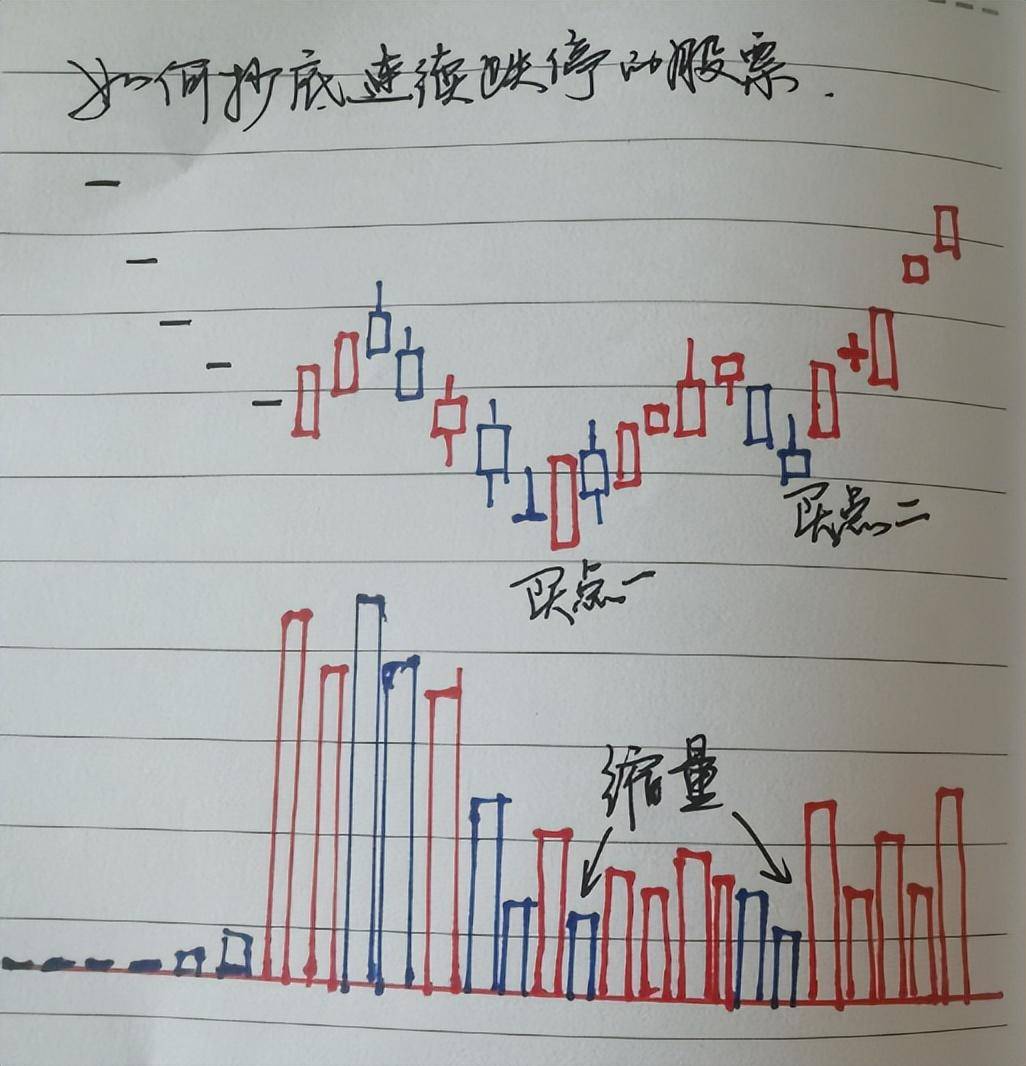 如何抄底连续跌停的股票.
买点二
买点一
缩量